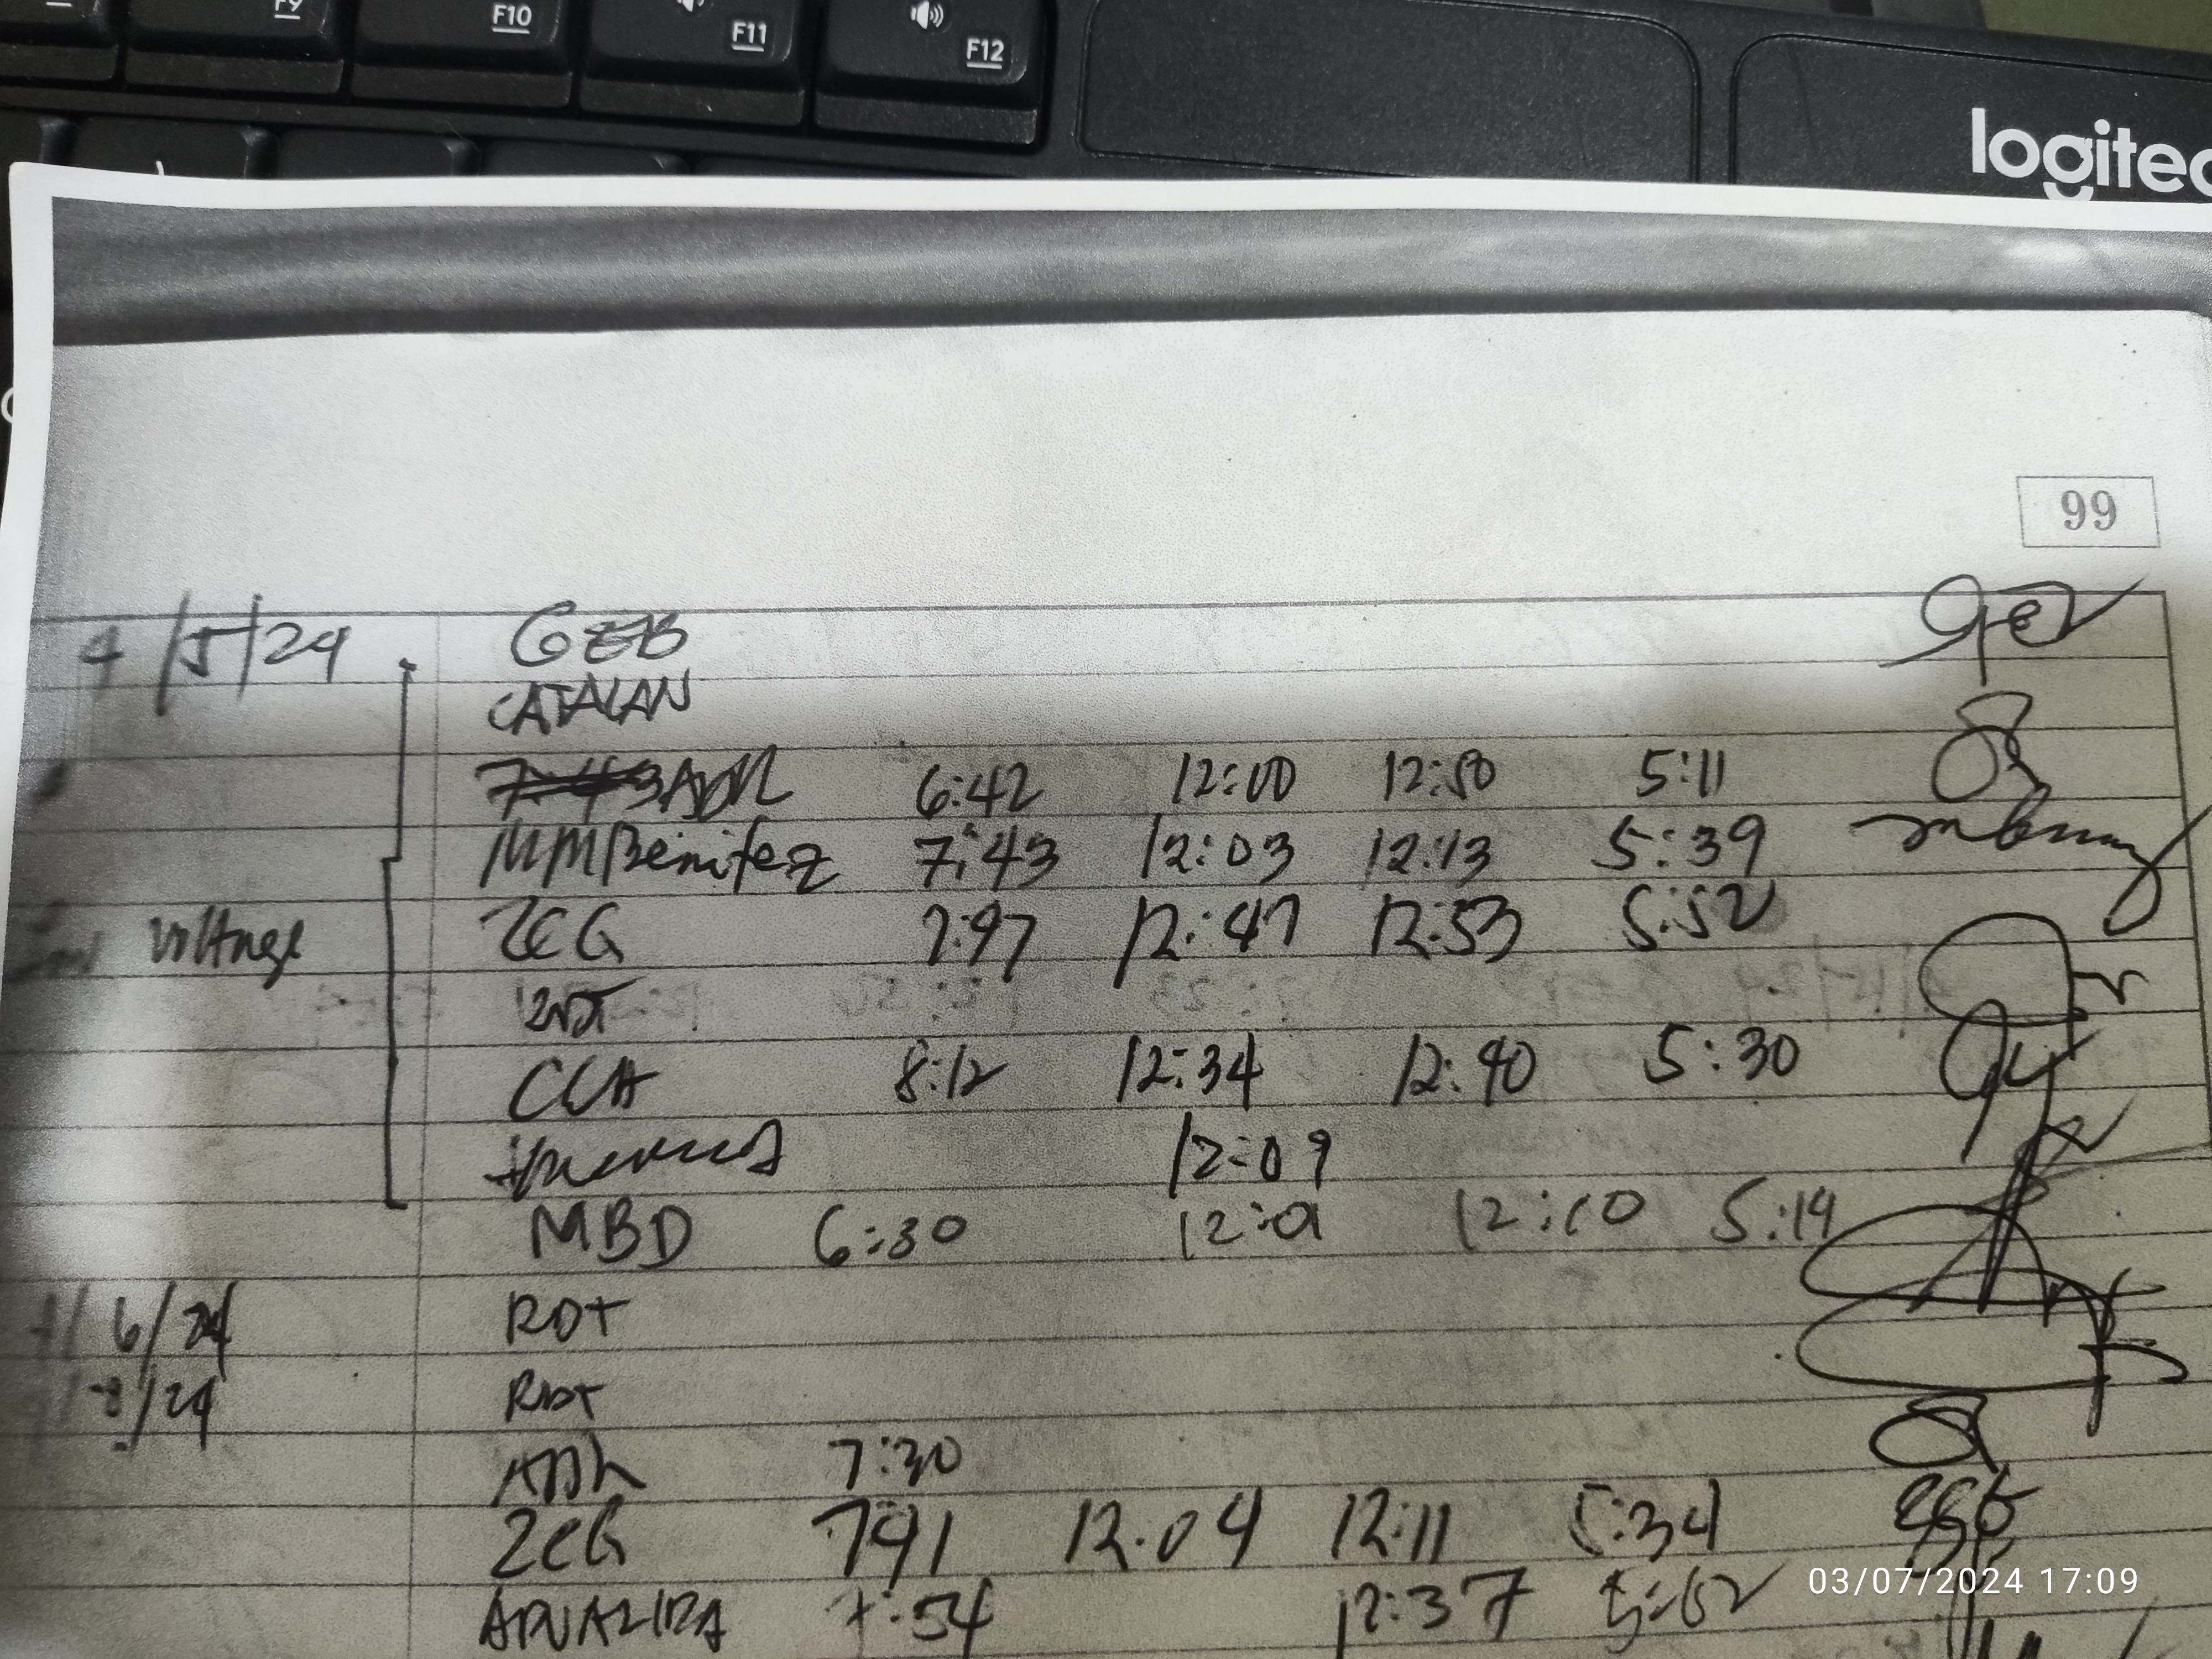 F9 F10 F11 F12
logitec
99
4/5/24 GEB
CATALAN
ADR 6:42 12:00 12:50 5:11
MMBenitez 7:43 12:03 12:13 5:39
voltage ZCG 7:47 12:47 12:53 5:52
RDT
CCA 8:12 12:34 12:40 5:30
12:09
MBD 6:30 12:01 12:10 5:14
/6/24 RDT
/8/24 RDT
ADR 7:30
ZCG 741 12.04 12:11 5:34
7:54 12:37 5:52
03/07/2024 17:09